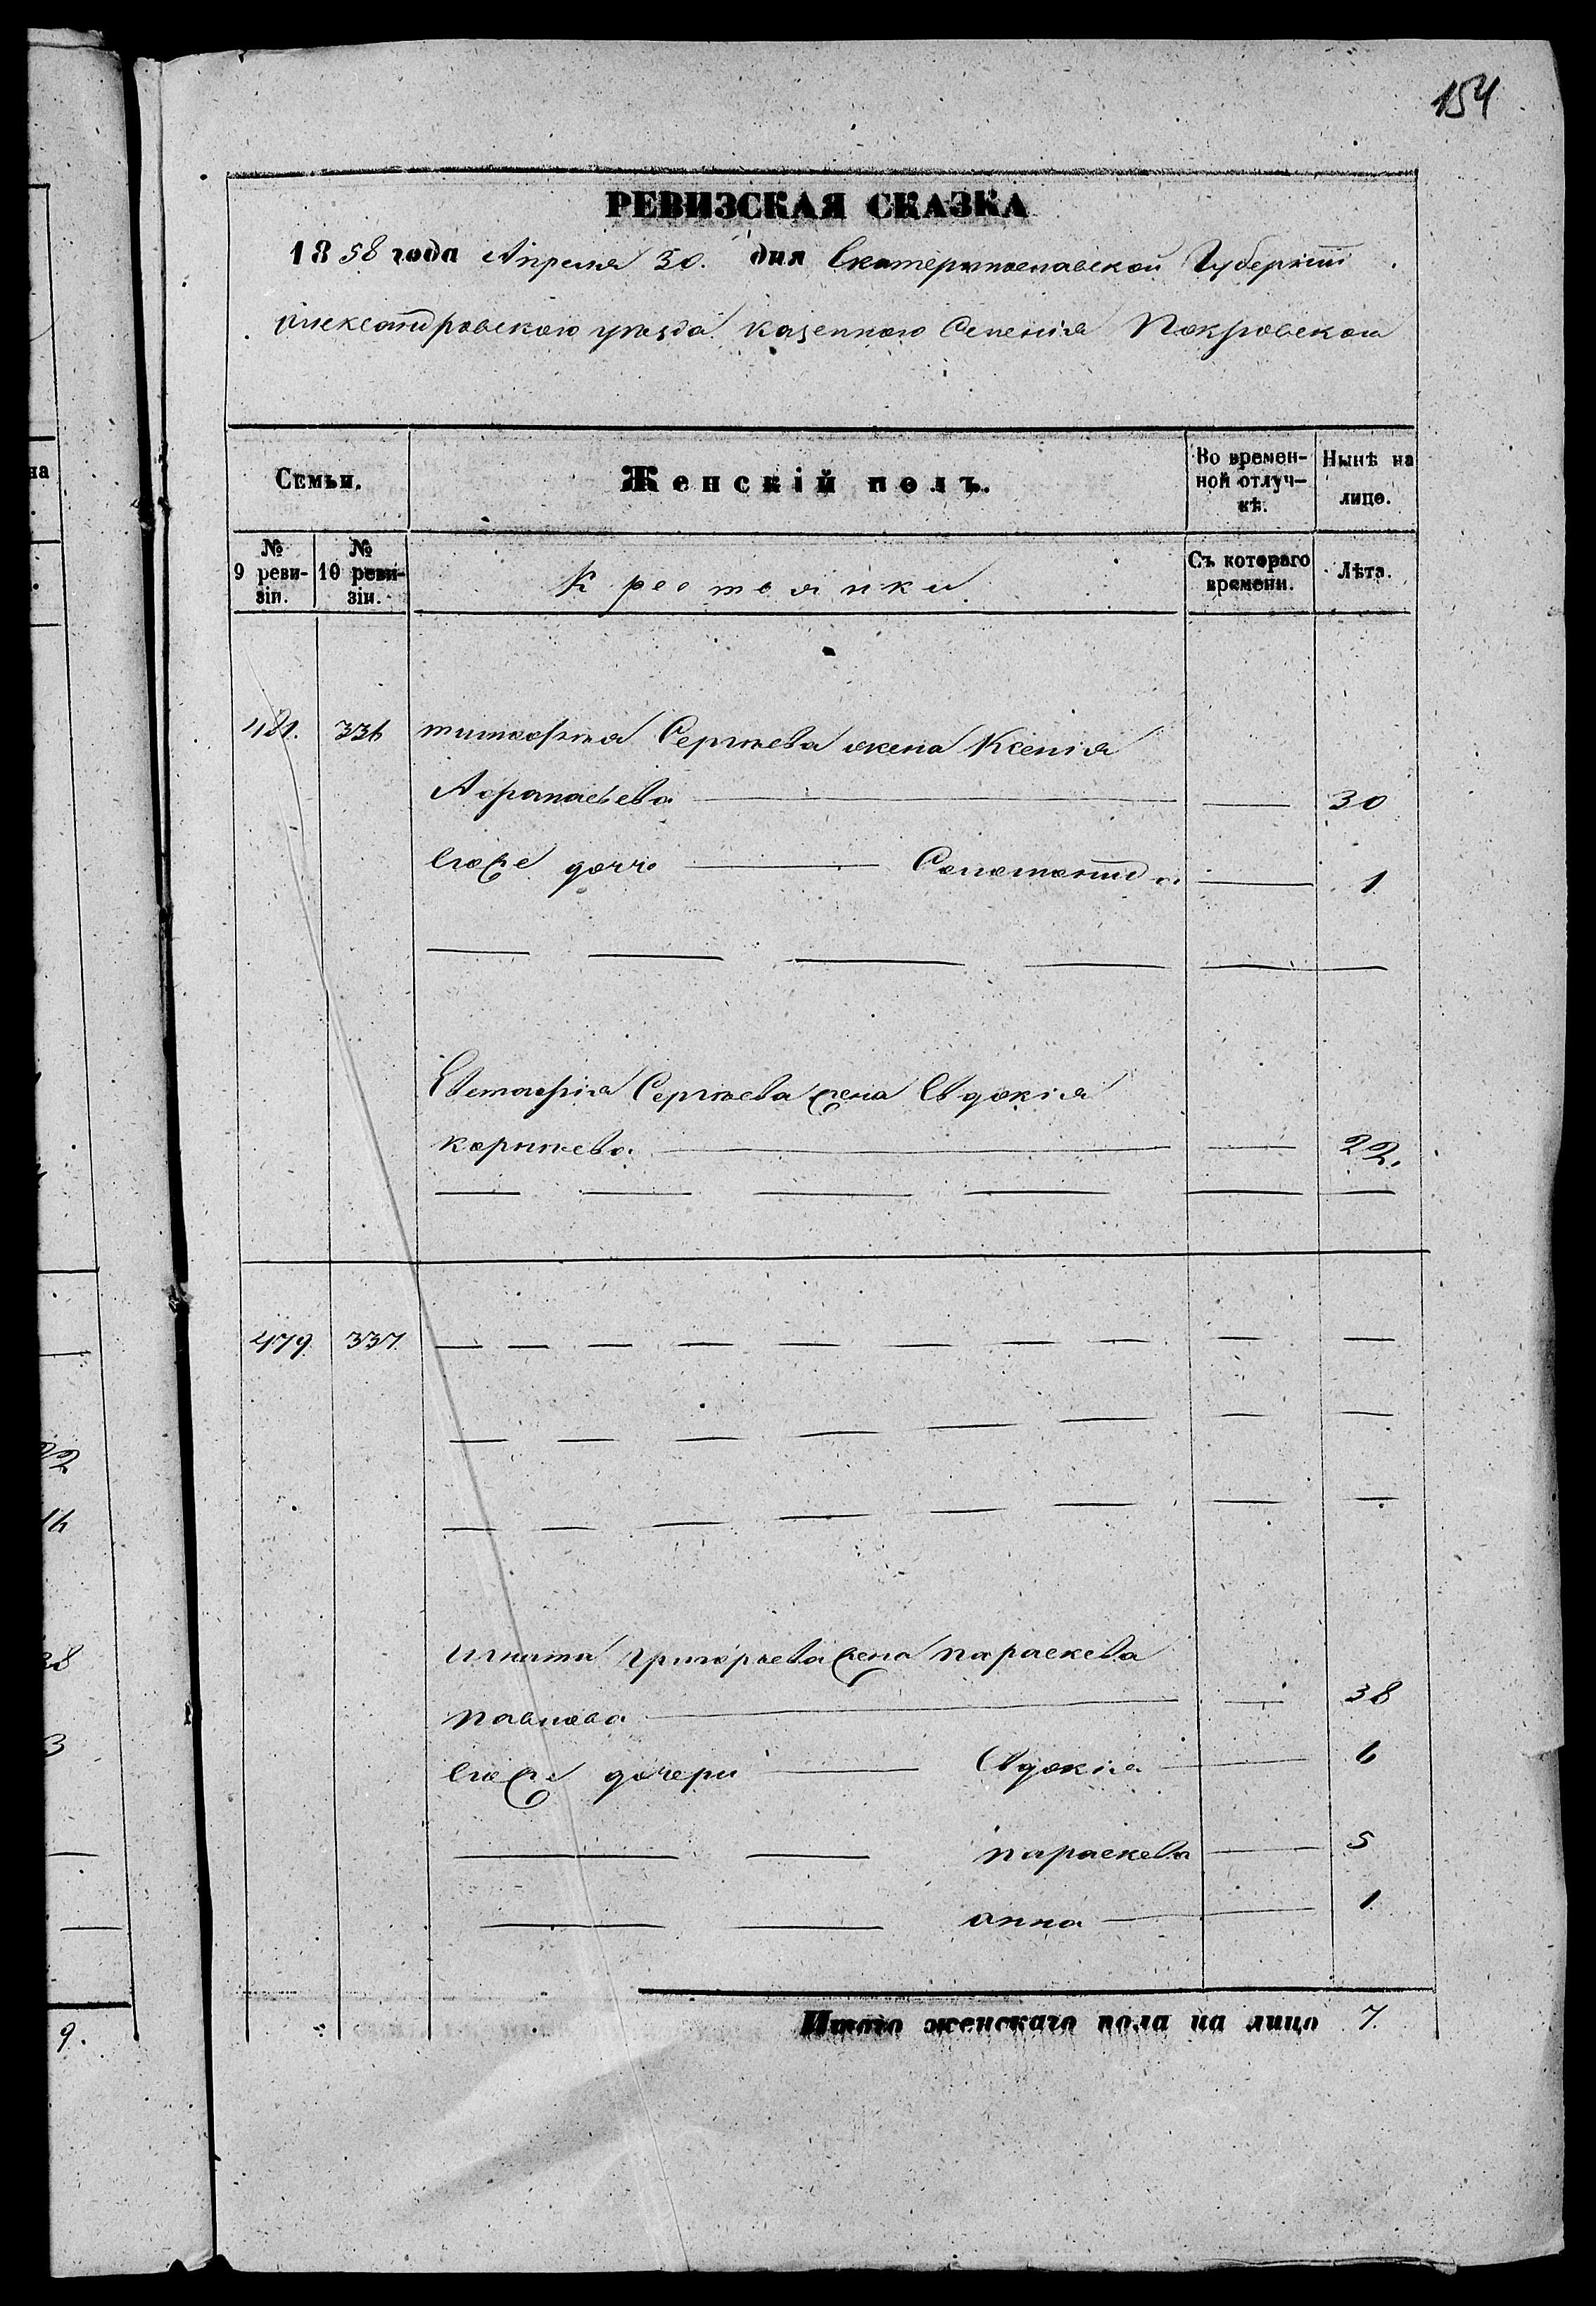 154
РЕВИЗСКАЯ СКАЗКА
1858 года Апреля 30. дня Екатеринославской Губерніи
Александровского уѣзда казенного Селенія Покровскои
Семьи.
Женскій полъ.
Во времен-
ной отлуч-
кѣ.
Нынѣ на
лицо.
№
9 реви-
зіи.
№
10 реви-
зіи.
Крестоянки
Съ котораго
времени.
Лѣта.
481. 336 тимофѣя Сергѣева жена Ксенія
Афанасьева — — 30
Егоже дочь — Соломонида — 1
Евстафія Сергѣева жена Евдокія
корнѣева — — 22.
479 337.
игната григорьева жена параскева
павлова — — 38
Егоже дочери — Евдокія — 6
— — параскева — 5
— — анна — 1
Итого женскаго пола на лицо 7.
на
22
16
38
3
9.